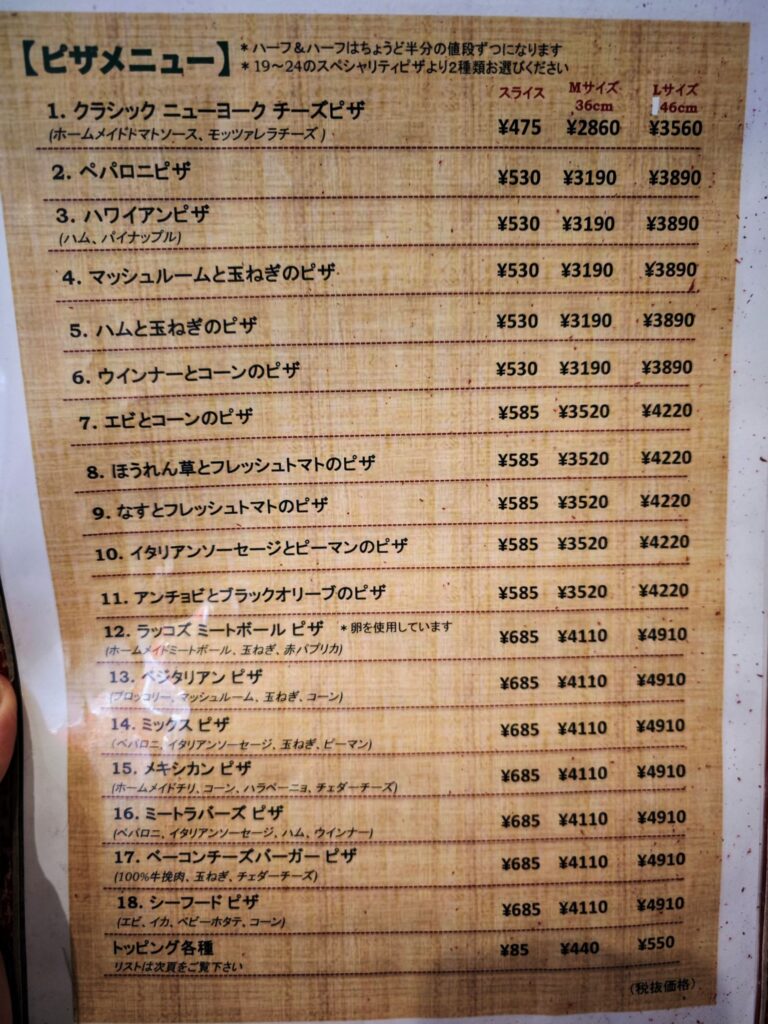 【ピザメニュー】
＊ハーフ＆ハーフはちょうど半分の値段ずつになります
＊19～24のスペシャリティピザより2種類お選びください
スライス Mサイズ 36cm Lサイズ 46cm
1. クラシック ニューヨーク チーズピザ ¥475 ¥2860 ¥3560
(ホームメイドトマトソース、モッツァレラチーズ )
2. ペパロニピザ ¥530 ¥3190 ¥3890
3. ハワイアンピザ ¥530 ¥3190 ¥3890
(ハム、パイナップル)
4. マッシュルームと玉ねぎのピザ ¥530 ¥3190 ¥3890
5. ハムと玉ねぎのピザ ¥530 ¥3190 ¥3890
6. ウインナーとコーンのピザ ¥530 ¥3190 ¥3890
7. エビとコーンのピザ ¥585 ¥3520 ¥4220
8. ほうれん草とフレッシュトマトのピザ ¥585 ¥3520 ¥4220
9. なすとフレッシュトマトのピザ ¥585 ¥3520 ¥4220
10. イタリアンソーセージとピーマンのピザ ¥585 ¥3520 ¥4220
11. アンチョビとブラックオリーブのピザ ¥585 ¥3520 ¥4220
12. ラッコズ ミートボール ピザ ＊卵を使用しています ¥685 ¥4110 ¥4910
(ホームメイドミートボール、玉ねぎ、赤パプリカ)
13. ベジタリアン ピザ ¥685 ¥4110 ¥4910
(ブロッコリー、マッシュルーム、玉ねぎ、コーン)
14. ミックス ピザ ¥685 ¥4110 ¥4910
(ペパロニ、イタリアンソーセージ、玉ねぎ、ピーマン)
15. メキシカン ピザ ¥685 ¥4110 ¥4910
(ホームメイドチリ、コーン、ハラペーニョ、チェダーチーズ)
16. ミートラバーズ ピザ ¥685 ¥4110 ¥4910
(ペパロニ、イタリアンソーセージ、ハム、ウインナー)
17. ベーコンチーズバーガー ピザ ¥685 ¥4110 ¥4910
(100%牛挽肉、玉ねぎ、チェダーチーズ)
18. シーフード ピザ ¥685 ¥4110 ¥4910
(エビ、イカ、ベビーホタテ、コーン)
トッピング各種 ¥85 ¥440 ¥550
リストは次頁をご覧下さい
(税抜価格)